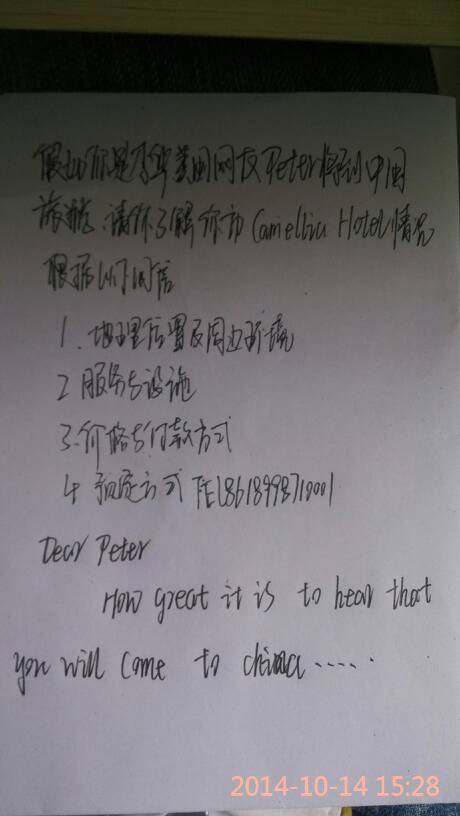 假如你是李华美国网友Peter将到中国
旅游,请你了解你市Camellia Hotel情况
根据以下内容
1、地理位置及周边环境
2 服务与设施
3.价格与付款方式
4 预定方式 TEL8618998710001
Dear Peter
How great it is to hear that
you will come to china......
2014-10-14 15:28